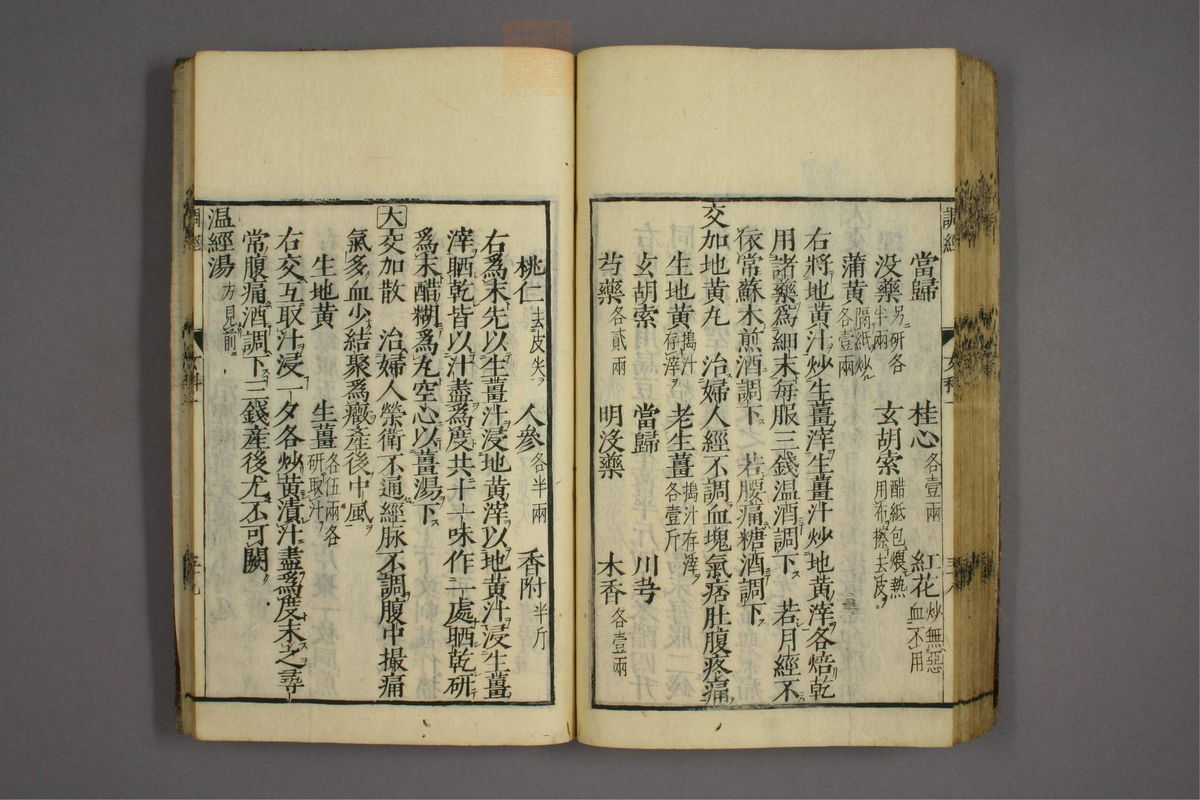 調經
當歸 桂心各壹兩 紅花炒無惡血不用
没藥另研各半兩 玄胡索醋紙包煨熱用布擦去皮
蒲黄隔紙炒各壹兩
右將地黄汁炒生薑滓生薑汁炒地黄滓各焙乾
用諸藥爲細末每服三錢温酒調下 若月經不
依常蘇木煎酒調下 若腰痛糖酒調下
交加地黄丸 治婦人經不調血塊氣痞肚腹疼痛
生地黄搗汁存滓 老生薑搗汁存滓各壹斤
玄胡索 當歸 川芎
芍藥各貳兩 明没藥 木香各壹兩
桃仁去皮尖 人參各半兩 香附半斤
右爲末先以生薑汁浸地黄滓以地黄汁浸生薑
滓晒乾皆以汁盡爲度共十一味作一處晒乾研
爲末醋糊爲丸空心以薑湯下
大交加散 治婦人榮衛不通經脉不調腹中撮痛
氣多血少結聚爲癥産後中風
生地黄 生薑各伍兩各研取汁
右交互取汁浸一夕各炒黄漬汁盡爲度末之尋
常腹痛酒調下三錢産後尤不可闕
温經湯方見前
調經
女科一